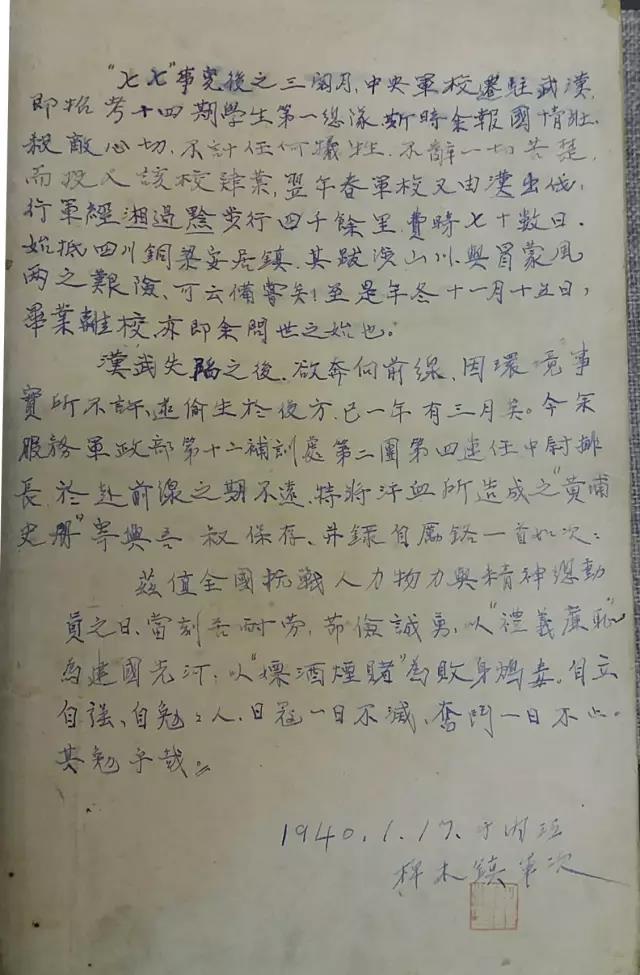 “七七”事变後之三閱月,中央軍校遷駐武漢,
即招考十四期學生第一總隊,斯時余報國情壯,
殺敵心切,不計任何犧牲,不辭一切苦楚,
而投入該校肄業,翌年春軍校又由漢出伐,
行軍經湘過黔步行四千餘里,費時七十數日,
始抵四川銅梁安居鎮,其跋涉山川,與冒蒙風
雨之艱險,可云備嘗矣!至是年冬十一月十五日,
畢業離校,亦即余問世之始也。
漢武失陷之後,欲奔向前線,因環竟事
實所不許,逃偷生於後方,已一年有三月矣。今余
服務軍政部第十二補訓處第二團第四連任中尉排
長,於赴前線之期不遠,特將汗血所造成之“黃埔
史册”寄與吾 叔保存,并錄自勵銘一首如次:
茲值全國抗戰人力物力與精神總動
員之日,當刻苦耐勞,節儉誠勇,以“禮義廉恥”
為建國先河,以“嫖酒煙賭”為敗身鴆毒,自立
自强,自勉勉人,日寇一日不滅,奮鬥一日不止。
其勉乎哉。
1940.1.17.于内江
椑木鎮軍次